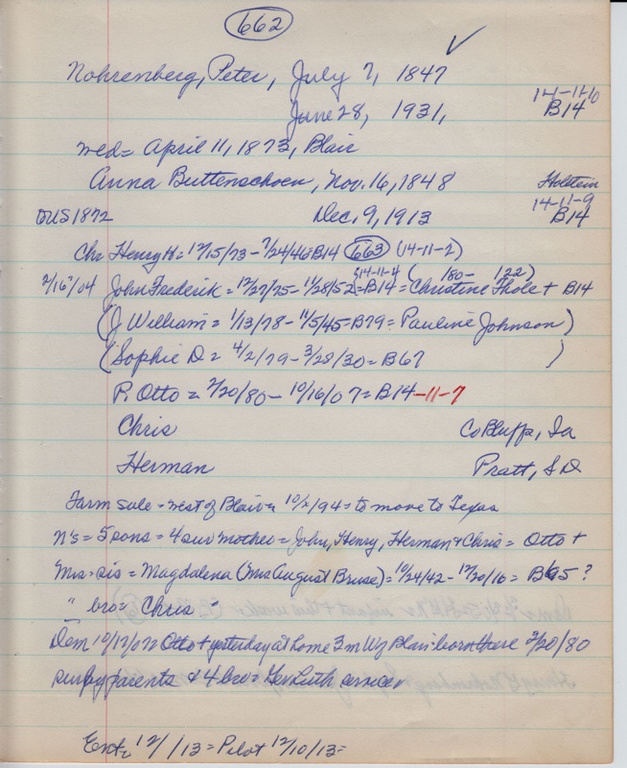 662 ✓
Nohrenberg, Peter, July 7, 1847
June 28, 1931, 14-11-10 B14
wed = April 11, 1873, Blair
Anna Buttenschoen, Nov. 16, 1848 Holstein
14-11-9
OUS 1872 Dec. 9, 1913 B14
Ch= Henry H = 12/15/73 - 7/24/46 B14 663 (14-11-2)
2/16/04 John Frederick = 12/27/75 - 11/28/52 = B14 = Christine Thole + B14
14-11-4 (180- 122)
(J William = 1/13/78 - 11/5/45 = B79 = Pauline Johnson)
(Sophie D = 4/2/79 - 3/28/30 = B67 )
P. Otto = 2/20/80 - 10/16/07 = B14-11-7
Chris Co Bluffs, Ia
Herman Pratt, S D
Farm sale - west of Blair = 10/2/94 = to move to Texas
N's = 5 sons = 4 sur mother = John, Henry, Herman & Chris = Otto +
Mrs = sis = Magdalena (Mrs August Bruse) = 10/24/42 - 12/20/16 = B65 ?
" bro = Chris "
Dem 10/17/07 Otto + yesterday at home 3 m W Blair born there 2/20/80
sur by parents & 4 bro = Luth services
Ent = 12/ /13 = Pilot 12/10/13 =